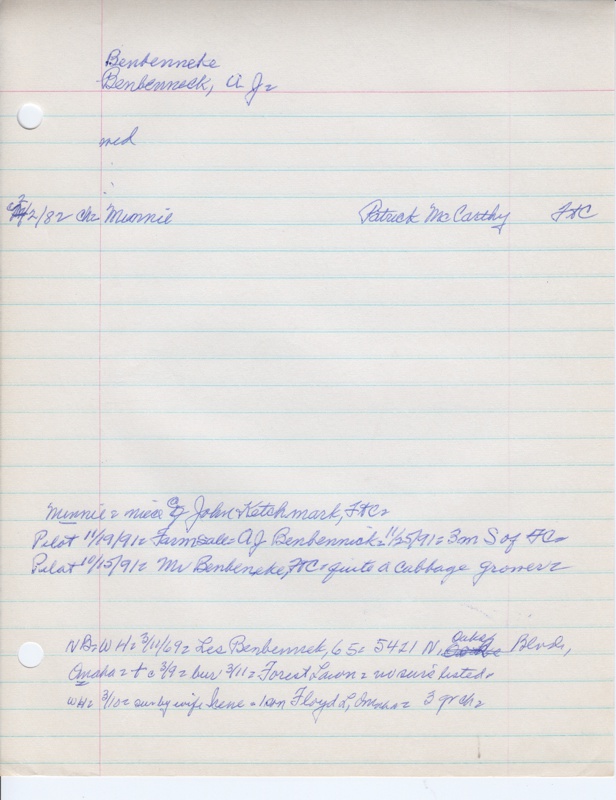 Benbenneke
Benbenneck, A J=
med
2/82 ch= Minnie Patrick McCarthy FtC
Minnie= niece of John Ketchmark, FtC=
Pilot 11/19/91= Farm sale= A J Benbennick= 11/25/91= 3m S of FC=
Pilot 10/15/91= Mr Benbeneke, FtC= quite a cabbage grower=
NB= WH= 3/11/69= Les Benbennek, 65= 5421 N. Blvd,
Omaha= + c 3/9= bur 3/11= Forest Lawn= no surs listed=
WH= 3/10= sur by wife Irene= 1 son Floyd L, Omaha= 3 gr ch=